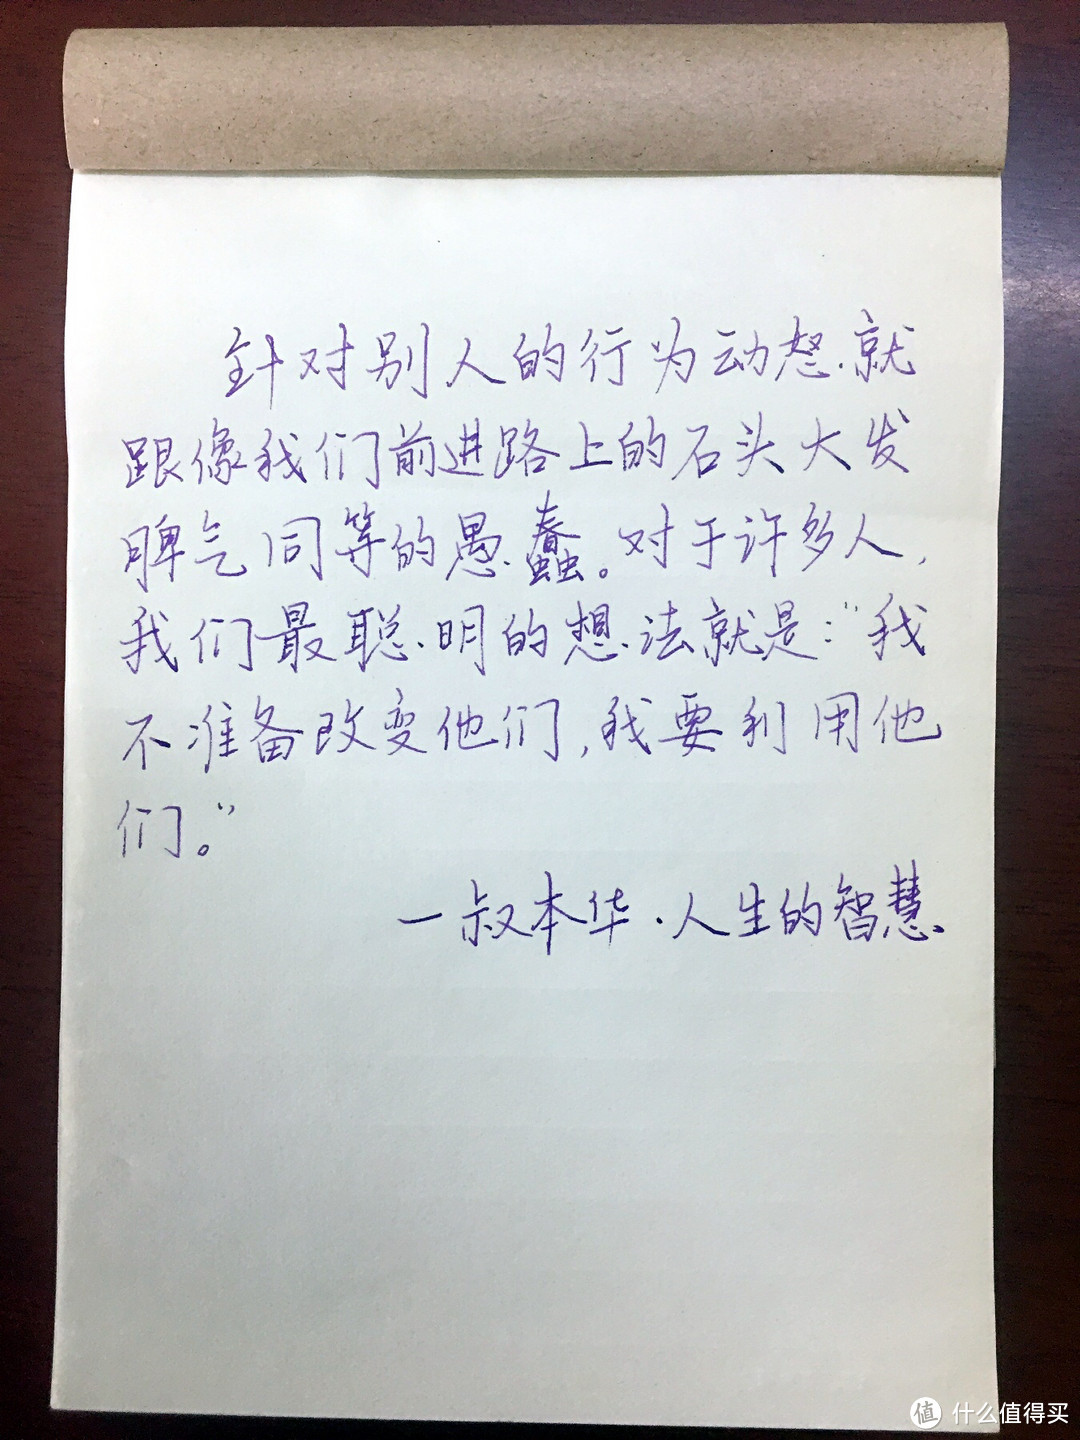 针对别人的行为动怒.就
跟像我们前进路上的石头大发
脾气同等的愚蠢。对于许多人,
我们最聪明的想法就是:“我
不准备改变他们,我要利用他
们。”
—叔本华·人生的智慧
值 什么值得买